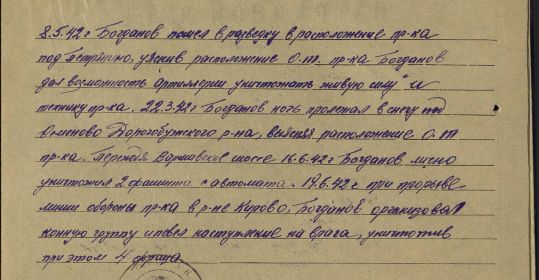 8.5.42 г Богданов пошел в разведку в расположение пр-ка
под Петрянино, уяснив расположение О.Т. пр-ка Богданов
дал возможность артиллерии уничтожать живую силу и
технику пр-ка. 22.3.42 г Богданов ночь пролежал в снегу под
Семеново Дорогобужского р-на, выясняя расположение О.Т
пр-ка. Переходя Варшавское шоссе 16.6.42 г Богданов лично
уничтожил 2 фашиста с автомата. 19.6.42 г при прорыве
линии обороны пр-ка в р-не Кирово, Богданов организовал
конную группу и повел наступление на врага, уничтожив
при этом 4 фрица